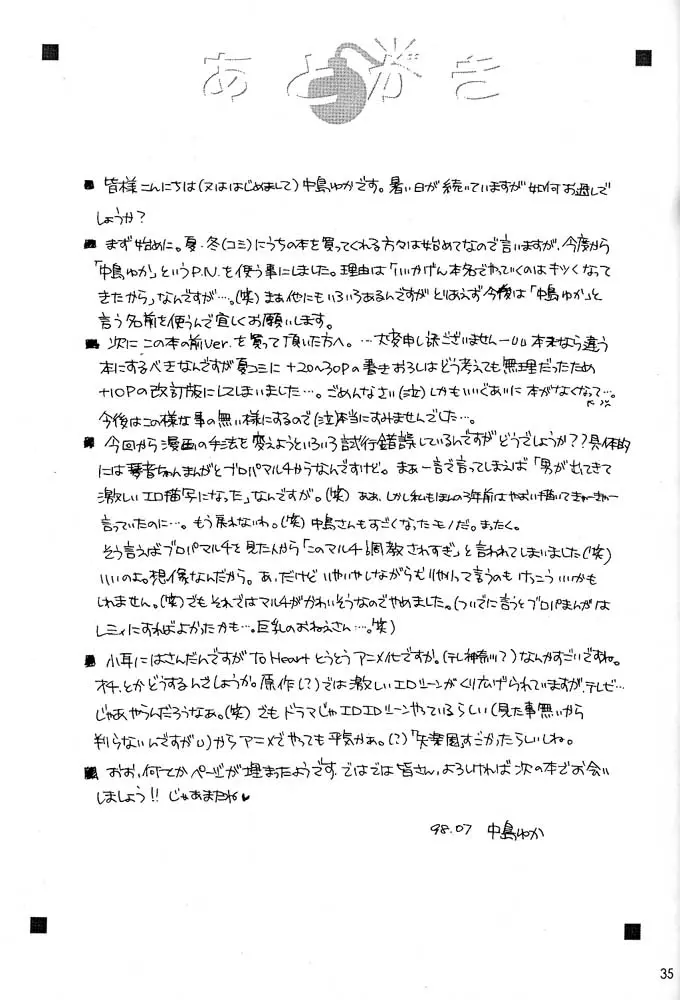 あとがき
■ 皆様こんにちは(又ははじめまして)中島ゆかです。暑い日が続いていますが如何お過しで
しょうか?
■ まず始めに。夏・冬(コミ)にうちの本を買ってくれる方々は始めてなので言いますが、今度から
「中島ゆか」というP.N.を使う事にしました。理由は「いいかげん本名でやっていくのはキツくなって
きたから」なんですが…。(笑)まぁ他にもいろいろあるんですがとりあえず今後は「中島ゆか」と
言う名前を使うんで宜しくお願いします。
■ 次にこの本の前Ver.を買って頂いた方へ。…大変申し訳ございませんー 本来なら違う
本にするべきなんですが夏コミに+20〜30Pの書きおろしはどう考えても無理だったため
+10Pの改訂版にしてしまいました…。ごめんなさい(泣)しかもいいぐあいに本がなくなって…。
今後はこの様な事の無い様にするので(泣)本当にすみませんでした…。
■ 今回から漫画の手法を変えようといろいろ試行錯誤しているんですがどうでしょうか??具体的
には琴音ちゃんまんがとブロパマルチからなんですけど。まぁ一言で言ってしまえば「男が出てきて
激しいエロ描写になった」なんですが。(笑)ああ、しかし私もほんの3年前はやおい描いてきゃーきゃー
言っていたのに…。もう戻れないわ。(笑)中島さんもすごくなったモノだ。まったく。
そう言えばブロパマルチを見た人から「このマルチ調教されすぎ」と言われてしまいました(笑)
いいのよ。想像なんだから。あ、だけどいやいやしながらむりやりって言うのもけっこういいかも
しれません。(笑)でもそれではマルチがかわいそうなのでやめました。(ついでに言うとブロパまんがは
レミィにすればよかったかも…。巨乳のおねえさん…。笑)
■ 小耳にはさんだんですがTo Heartとうとうアニメ化ですか。(テレ神奈川?)なんかすごいですね。
オチ、とかどうするんでしょうか。原作(?)では激しいエロシーンがくり広げられていますが、テレビ…
じゃあやらんだろうなぁ。(笑)でもドラマじゃエロエロシーンやっているらしい(見た事無いから
判らないんですが)からアニメでやっても平気かぁ。(?)「失楽園すごかったらしいしね。
■ おお、何とかページが埋まったようです。ではでは皆さん、よろしければ次の本でお会い
しましょう!!じゃあまたね♥
98.07 中島ゆか
35